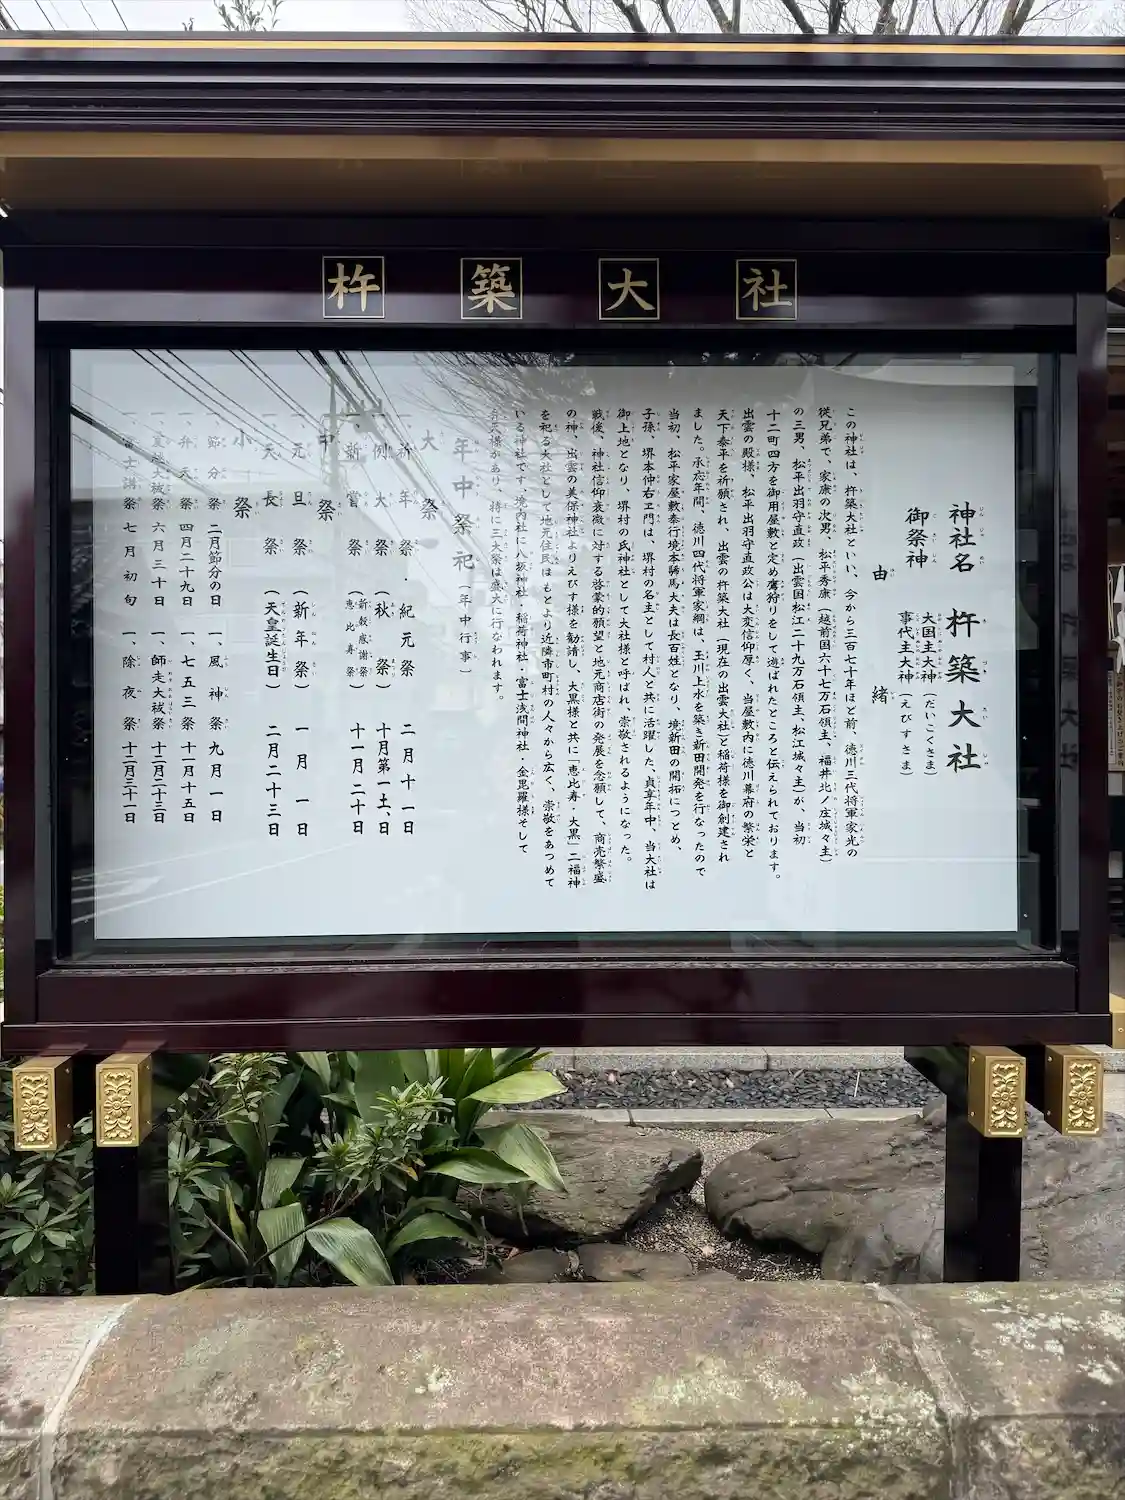 杵築大社
神社名 杵築大社
御祭神 大国主大神(だいこくさま)
事代主大神(えびすさま)
由緒
この神社は、杵築大社といい、今から三百七十年ほど前、徳川三代将軍家光の
従兄弟で、家康の次男、松平秀康(越前国六十七万石領主、福井北ノ庄城々主)
の三男、松平出羽守直政(出雲国松江二十九万石領主、松江城々主)が、当初
十二町四方を御用屋敷と定め鷹狩りをして遊ばれたところと伝えられております。
出雲の殿様、松平出羽守直政公は大変信仰厚く、当屋敷内に徳川幕府の繁栄と
天下泰平を祈願され、出雲の杵築大社(現在の出雲大社)と稲荷様を御創建され
ました。承応年間、徳川四代将軍家綱は、玉川上水を築き新田開発を行なったので
当初、松平家屋敷奉行境本驕馬大夫は長百姓となり、境新田の開拓につとめ、
子孫、堺本仲右エ門は、堺村の名主として村人と共に活躍した、貞享年中、当大社は
御上地となり、堺村の氏神社として大社様と呼ばれ、崇敬されるようになった。
戦後、神社信仰衰微に対する啓蒙的願望と地元商店街の発展を念願して、商売繁盛
の神、出雲の美保神社よりえびす様を勧請し、大黒様と共に「恵比寿・大黒」二福神
を祀る大社として地元住民はもとより近隣市町村の人々から広く、崇敬をあつめて
いる神社です。境内社に八坂神社・稲荷神社・富士浅間神社・金毘羅様そして
弁天様があり、特に三大祭は盛大に行なわれます。
年中祭祀(年中行事)
大祭
一、祈年祭・紀元祭 二月十一日
一、例大祭(秋祭) 十月第一土、日
一、新嘗祭(新穀感謝祭 恵比寿祭) 十一月二十日
中祭
一、元旦祭(新年祭) 一月一日
一、天長祭(天皇誕生日) 二月二十三日
小祭
一、節分祭 二月節分の日 一、風神祭 九月一日
一、弁天祭 四月二十九日 一、七五三祭 十一月十五日
一、夏越大祓祭 六月三十日 一、師走大祓祭 十二月二十三日
一、富士講祭 七月初旬 一、除夜祭 十二月三十一日